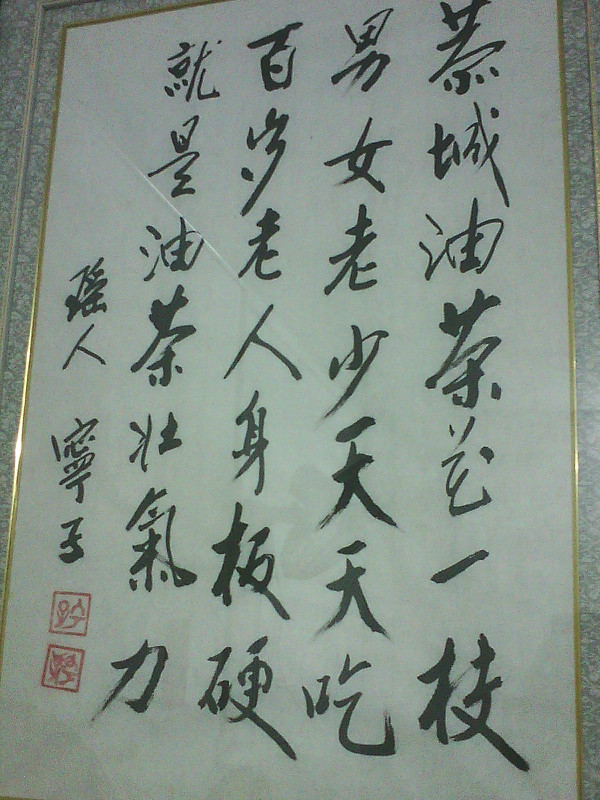 恭城油茶花一枝
男女老少天天吃
百岁老人身板硬
就是油茶壮氣力
瑶人 寧子